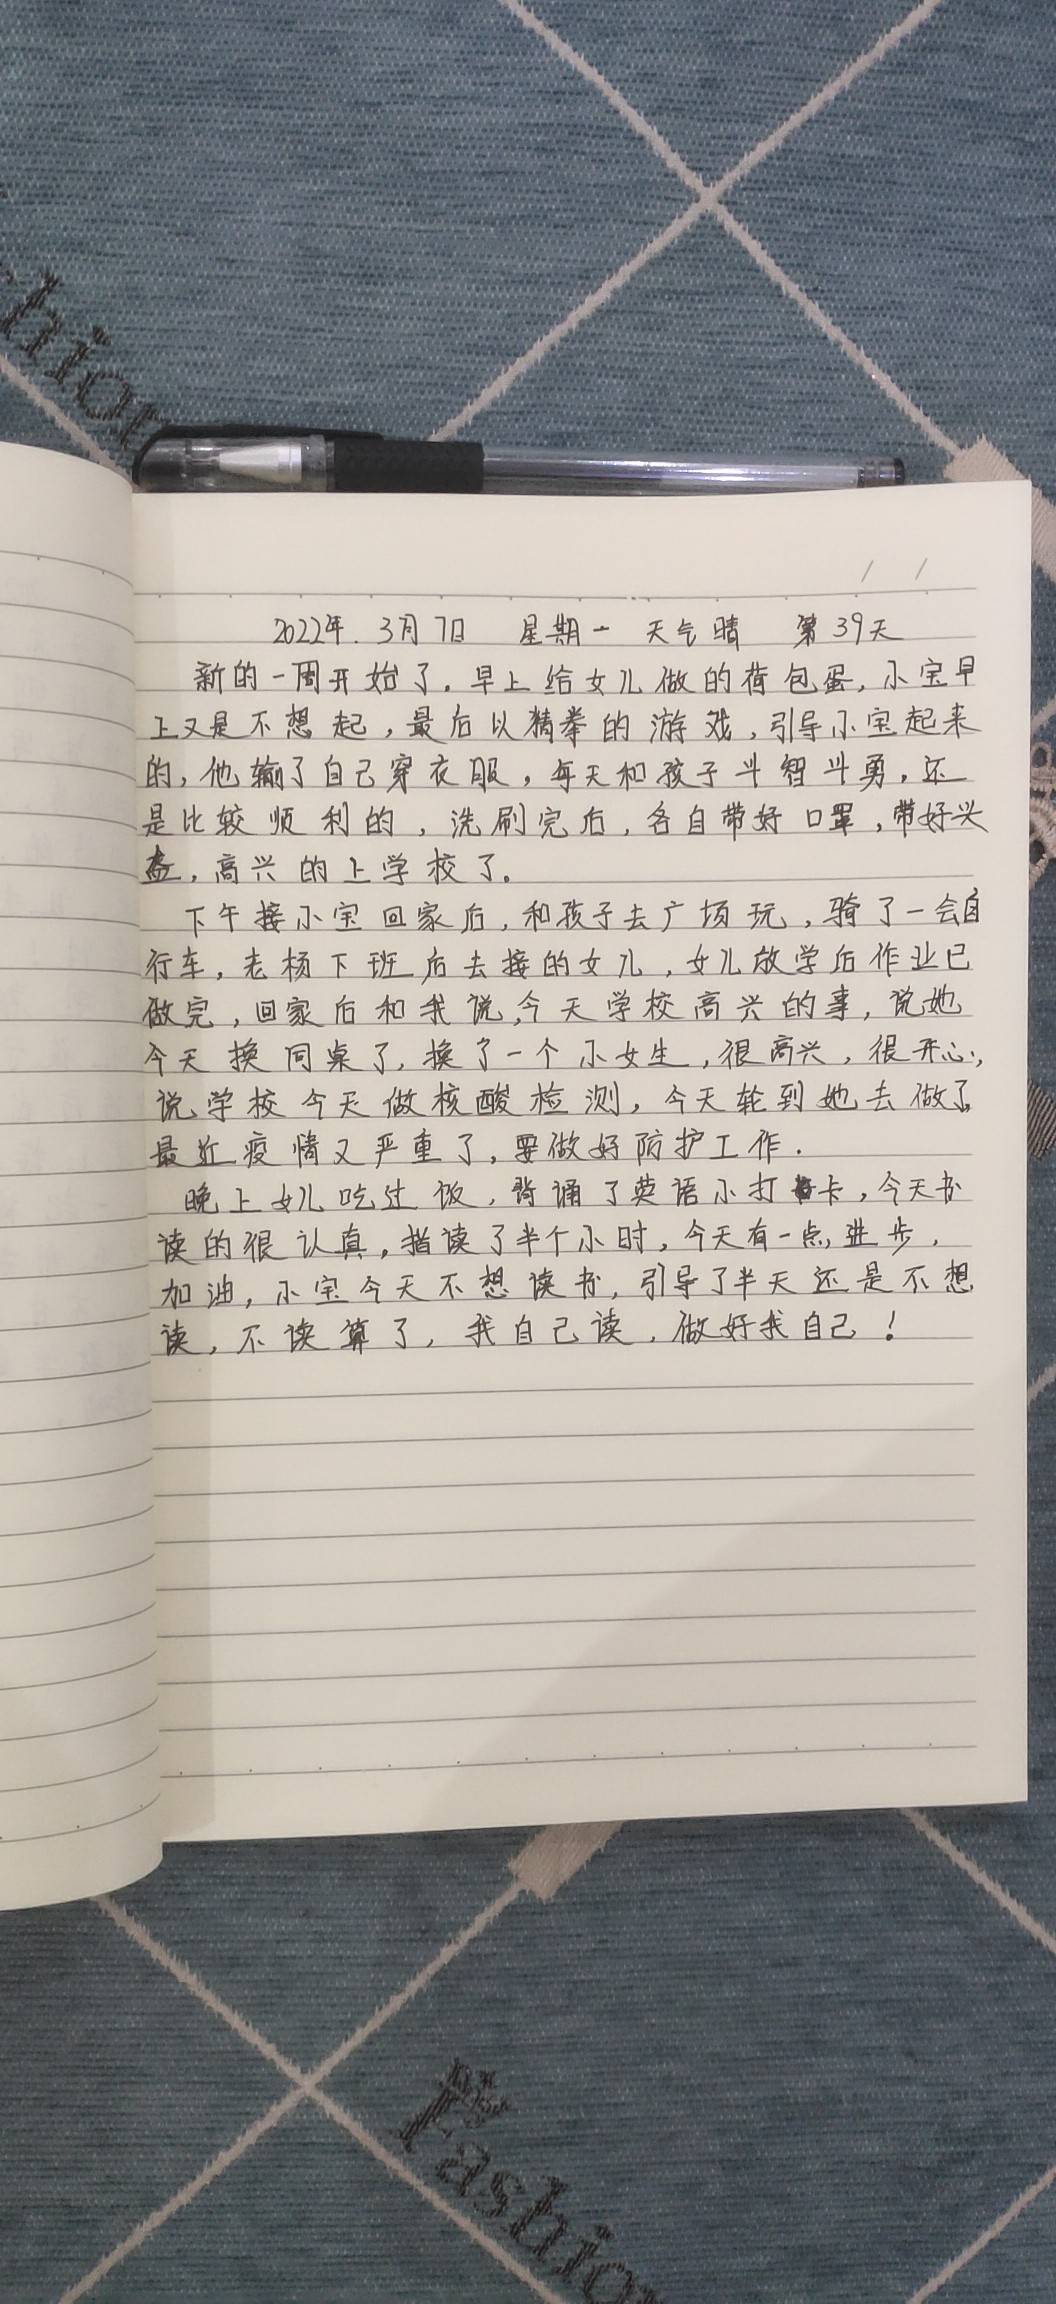 shion
2022年.3月7日 星期一 天气晴 第39天
新的一周开始了。早上给女儿做的荷包蛋,小宝早
上又是不想起,最后以猜拳的游戏,引导小宝起来
的,他输了自己穿衣服,每天和孩子斗智斗勇,还
是比较顺利的,洗刷完后,各自带好口罩,带好头
盔,高兴的上学校了。
下午接小宝回家后,和孩子去广场玩,骑了一会自
行车,老杨下班后去接的女儿,女儿放学后作业已
做完,回家后和我说,今天学校高兴的事,说她
今天换同桌了,换了一个小女生,很高兴,很开心,
说学校今天做核酸检测,今天轮到她去做了,
最近疫情又严重了,要做好防护工作.
晚上女儿吃过饭,背诵了英语小打卡,今天书
读的很认真,指读了半个小时,今天有一点进步,
加油,小宝今天不想读书,引导了半天还是不想
读,不读算了,我自己读,做好我自己!
Fashion